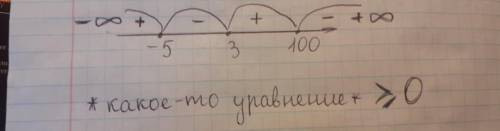 -∞ + - + - +∞
-5 3 100
*какое-то уравнение* ⩾0